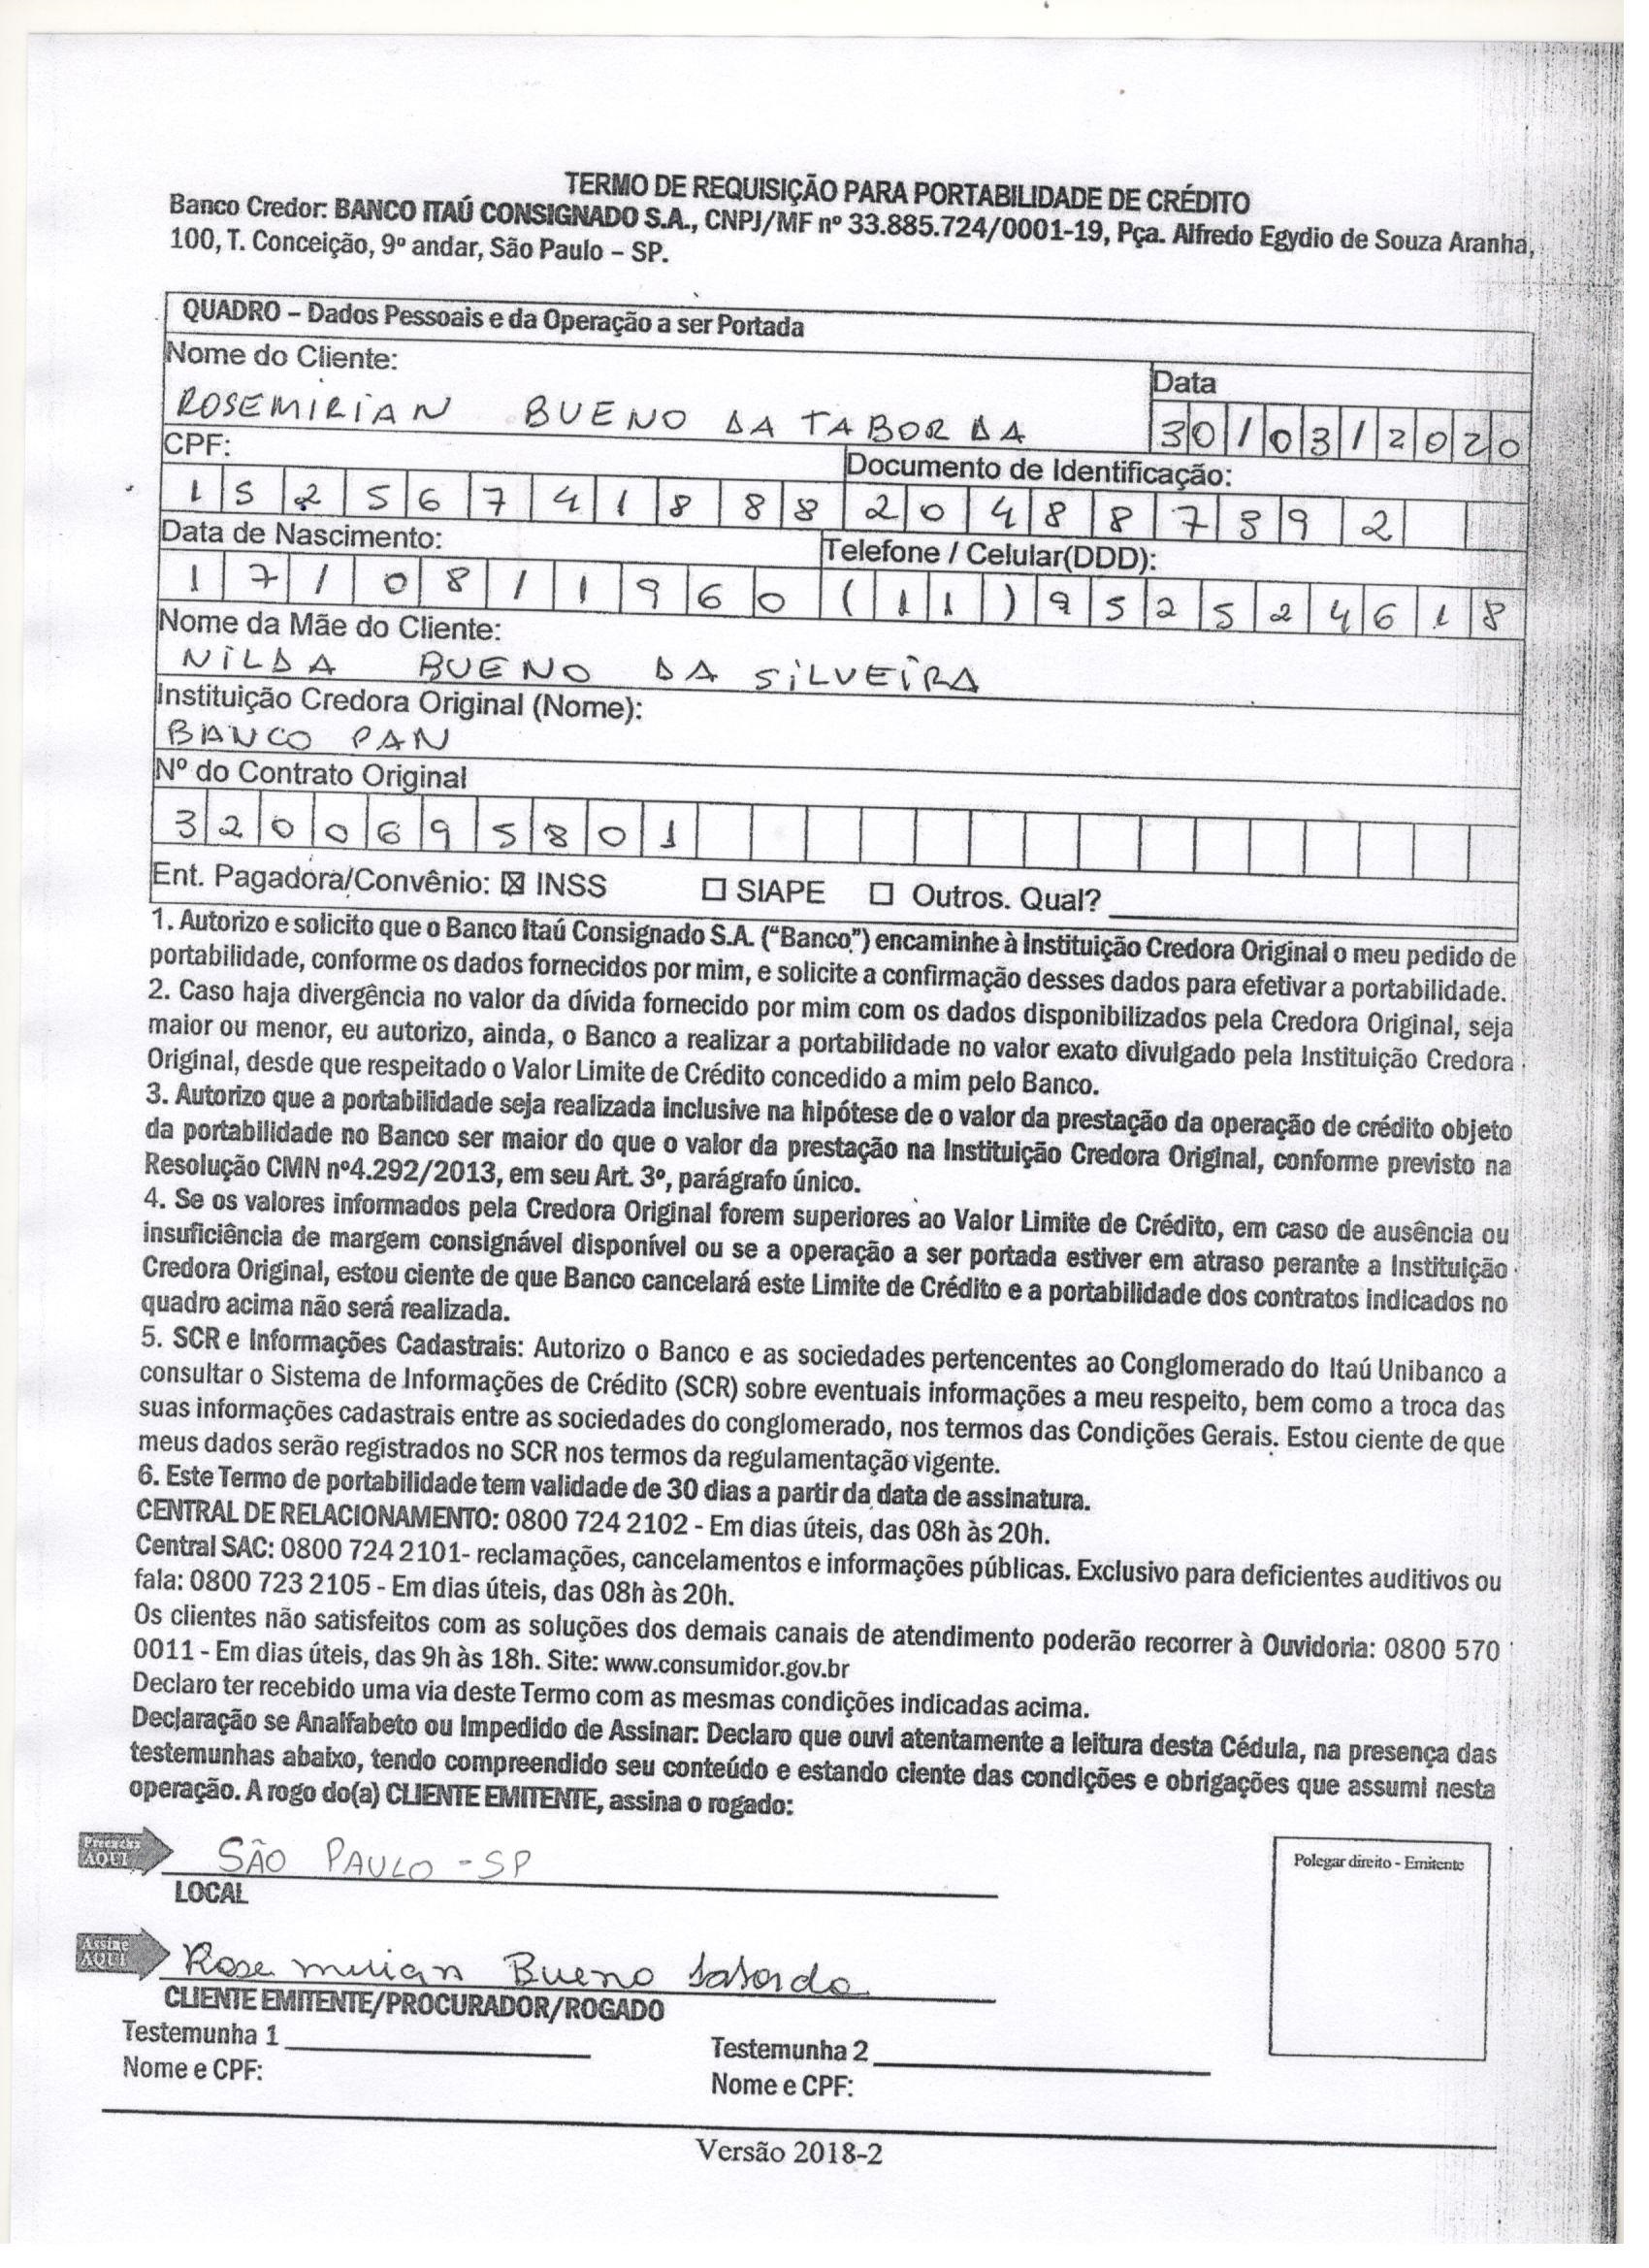 TERMO DE REQUISIÇÃO PARA PORTABILIDADE DE CRÉDITO
Banco Credor: BANCO ITAÚ CONSIGNADO S.A., CNPJ/MF nº 33.885.724/0001-19, Pça. Alfredo Egydio de Souza Aranha,
100, T. Conceição, 9º andar, São Paulo – SP.
QUADRO – Dados Pessoais e da Operação a ser Portada
Nome do Cliente:
Data
ROSEMIRIAN BUENO DA TABORDA
30/03/2020
CPF:
Documento de Identificação:
15256741888
204887892
Data de Nascimento:
Telefone / Celular(DDD):
17/08/1960
(11)952524618
Nome da Mãe do Cliente:
NILDA BUENO DA SILVEIRA
Instituição Credora Original (Nome):
BANCO PAN
Nº do Contrato Original
3200695801
Ent. Pagadora/Convênio: ☒ INSS ☐ SIAPE ☐ Outros. Qual?
1. Autorizo e solicito que o Banco Itaú Consignado S.A. (“Banco”) encaminhe à Instituição Credora Original o meu pedido de
portabilidade, conforme os dados fornecidos por mim, e solicite a confirmação desses dados para efetivar a portabilidade.
2. Caso haja divergência no valor da dívida fornecido por mim com os dados disponibilizados pela Credora Original, seja
maior ou menor, eu autorizo, ainda, o Banco a realizar a portabilidade no valor exato divulgado pela Instituição Credora
Original, desde que respeitado o Valor Limite de Crédito concedido a mim pelo Banco.
3. Autorizo que a portabilidade seja realizada inclusive na hipótese de o valor da prestação da operação de crédito objeto
da portabilidade no Banco ser maior do que o valor da prestação na Instituição Credora Original, conforme previsto na
Resolução CMN nº4.292/2013, em seu Art. 3º, parágrafo único.
4. Se os valores informados pela Credora Original forem superiores ao Valor Limite de Crédito, em caso de ausência ou
insuficiência de margem consignável disponível ou se a operação a ser portada estiver em atraso perante a Instituição
Credora Original, estou ciente de que Banco cancelará este Limite de Crédito e a portabilidade dos contratos indicados no
quadro acima não será realizada.
5. SCR e Informações Cadastrais: Autorizo o Banco e as sociedades pertencentes ao Conglomerado do Itaú Unibanco a
consultar o Sistema de Informações de Crédito (SCR) sobre eventuais informações a meu respeito, bem como a troca das
suas informações cadastrais entre as sociedades do conglomerado, nos termos das Condições Gerais. Estou ciente de que
meus dados serão registrados no SCR nos termos da regulamentação vigente.
6. Este Termo de portabilidade tem validade de 30 dias a partir da data de assinatura.
CENTRAL DE RELACIONAMENTO: 0800 724 2102 - Em dias úteis, das 08h às 20h.
Central SAC: 0800 724 2101- reclamações, cancelamentos e informações públicas. Exclusivo para deficientes auditivos ou
fala: 0800 723 2105 - Em dias úteis, das 08h às 20h.
Os clientes não satisfeitos com as soluções dos demais canais de atendimento poderão recorrer à Ouvidoria: 0800 570
0011 - Em dias úteis, das 9h às 18h. Site: www.consumidor.gov.br
Declaro ter recebido uma via deste Termo com as mesmas condições indicadas acima.
Declaração se Analfabeto ou Impedido de Assinar: Declaro que ouvi atentamente a leitura desta Cédula, na presença das
testemunhas abaixo, tendo compreendido seu conteúdo e estando ciente das condições e obrigações que assumi nesta
operação. A rogo do(a) CLIENTE EMITENTE, assina o rogado:
Preencha
AQUI
SÃO PAULO - SP
LOCAL
Polegar direito - Emitente
Assine
AQUI
Rosemirian Bueno Taborda
CLIENTE EMITENTE/PROCURADOR/ROGADO
Testemunha 1
Testemunha 2
Nome e CPF:
Nome e CPF:
Versão 2018-2